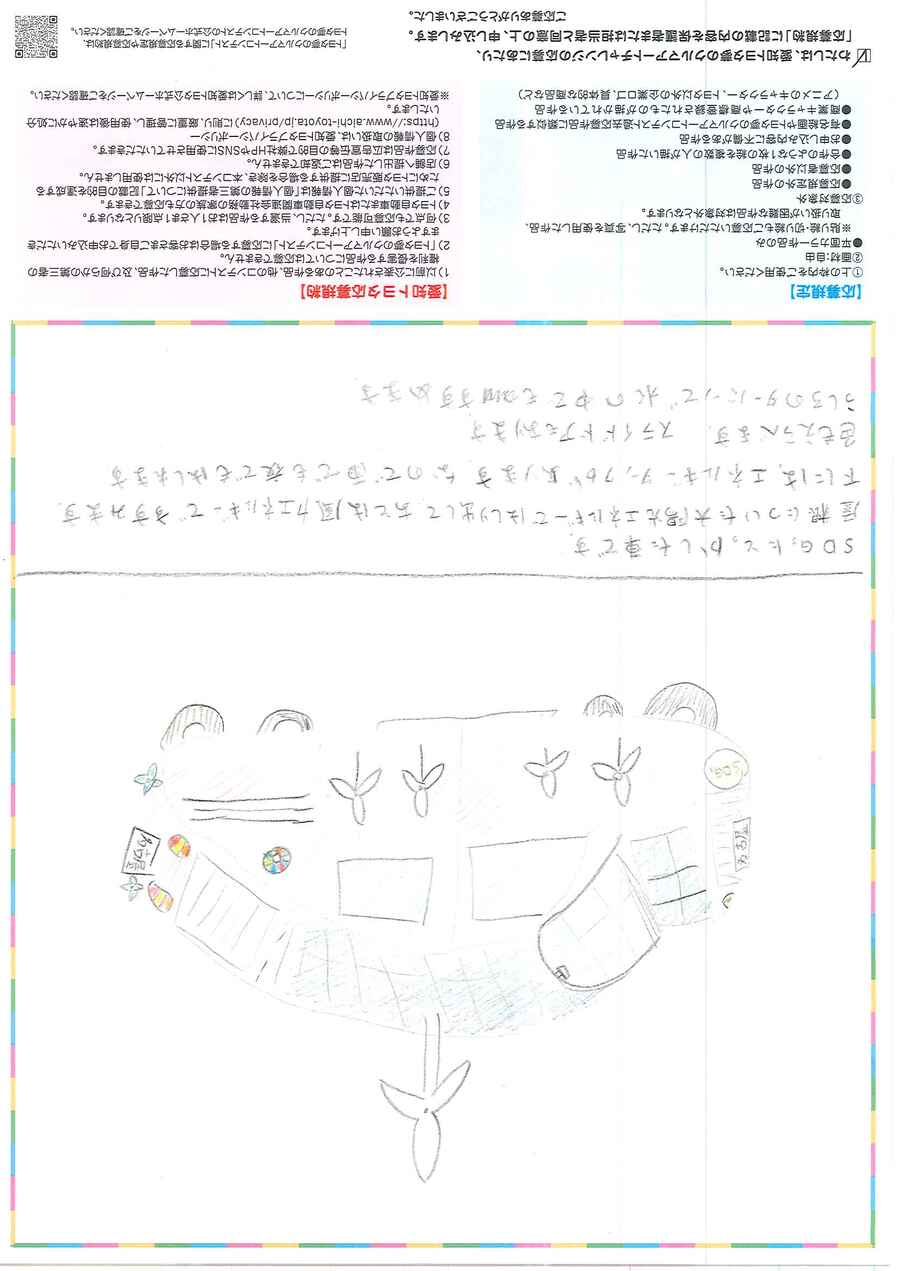 SDGs
名古屋
名古屋
SDGsにとっかした車です。
屋根についた太陽光エネルギーではしり出して あとは風力エネルギーですすみます。
下には、エネルギータンクがあります。なので雨でも夜でもはしれます
色もえらべます。 スライドドアもあります
うしろのタービンで水の中でもすすめます
【応募規定】
①上の枠内をご使用ください。
②画材:自由
●平面カラー作品のみ
※貼り絵・切り絵も応募いただけます。ただし、写真を使用した作品、
取り扱いが困難な作品は対象外となります。
③応募対象外
●応募規定外の作品
●応募者以外の作品
●合作のような1枚の絵を複数の人が描いた作品
●お申し込み内容に不備がある作品
●有名絵画やトヨタ夢のクルマアートコンテスト過去応募作品に類似する作品
●商業キャラクターや商標登録されたものが描かれている作品
(アニメのキャラクター、トヨタ以外の企業ロゴ、具体的な商品など)
【愛知トヨタ応募規約】
1)以前に公表されたことのある作品、他のコンテストに応募した作品、及び何らかの第三者の
権利を侵害する作品については応募できません。
2)「トヨタ夢のクルマアートコンテスト」に応募する場合はお客さまご自身でお申込みいただき
ますようお願い申し上げます。
3)何点でも応募可能です。ただし、当選する作品はお1人さま1点限りとなります。
4)トヨタ自動車またはトヨタ自動車関連会社勤務の家族の方も応募できます。
5)ご提供いただいた個人情報は「個人情報の第三者提供について」記載の目的を達成する
ためにトヨタ販売店に提供する場合を除き、本コンテスト以外には使用しません。
6)店舗へ提出した作品はご返却できません。
7)応募作品は広告宣伝等の目的で弊社HPやSNSに使用させていただきます。
8)個人情報の取扱いは、愛知トヨタプライバシーポリシー
(https://www.aichi-toyota.jp/privacy)に則り、厳重に管理し、使用後は速やかに処分
いたします。
※愛知トヨタプライバシーポリシーについて、詳しくは愛知トヨタ公式ホームページをご確認ください。
わたしは、愛知トヨタ夢のクルマアートチャレンジの応募にあたり、
「応募規約」に記載の内容を保護者または担当者と同意の上、申し込みします。
ご応募ありがとうございました。
「トヨタ夢のクルマアートコンテスト」に関する応募規定や応募規約は、
トヨタ夢のクルマアートコンテストの公式ホームページをご確認ください。